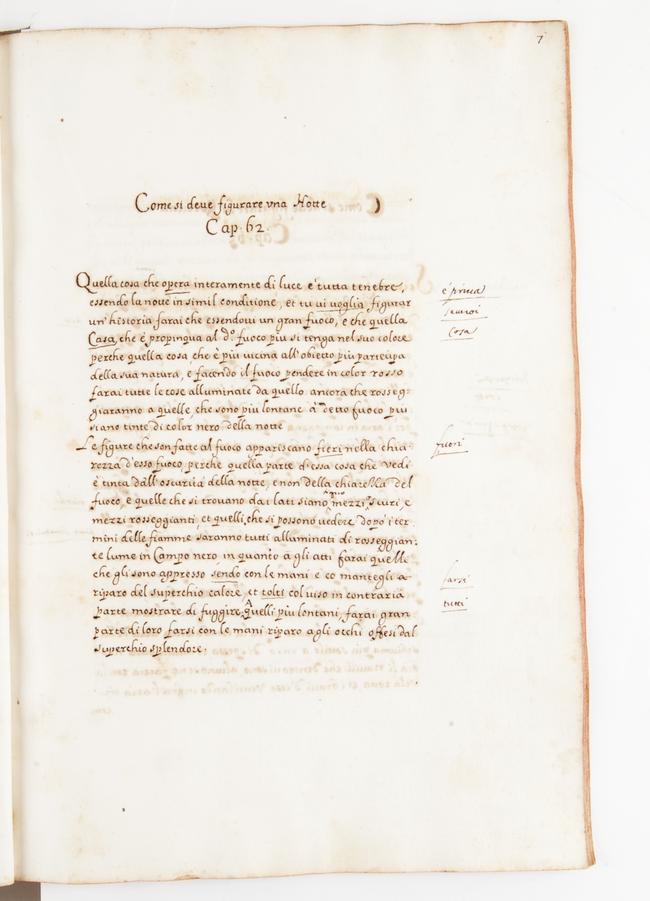 7
Come si deve figurare una Notte
Cap. 62.
Quella cosa che opera interamente di luce è tutta tenebre,
essendo la notte in simil conditione, et tu ui voglia figurar
un'historia farai che essendoui un gran fuoco, e che quella
Casa, che è propinqua al d.o fuoco più si tenga nel suo colore
perche quella cosa, che è più vicina all'obietto più participa
della sua natura, e facendo il fuoco pendere in color rosso
farai tutte le cose alluminate da quello ancora che rosseg-
giaranno a quelle, che sono più lontane à detto fuoco più
siano tinte di color nero della notte
Le figure che son fatte al fuoco appariscano fieri nella chia-
rezza d'esso fuoco perche quella parte d'essa cosa che vedi
è tinta dall'oscurità della notte, e non della chiarezza del
fuoco, e quelle che si trovano da i lati siano mezzi scuri, e
mezzi rosseggianti, et quelli, che si possono uedere dopo i ter-
mini delle fiamme saranno tutti alluminati di rosseggian-
te lume in Campo nero, in quanto a gli atti farai quelle
che gli sono appresso sendo con le mani e co mantegli a
riparo del superchio calore, et tolti col uiso in contraria
parte mostrare di fuggire, quelli più lontani, farai gran
parte di loro farsi con le mani riparo a gli occhi offesi dal
superchio splendore.
è priua
cosa
fuori
farsi
tutti